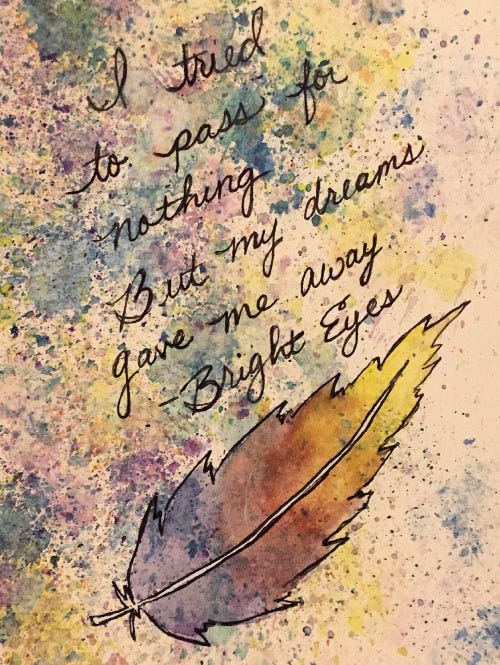 I tried
to pass for
nothing
But my dreams
gave me away
-Bright Eyes